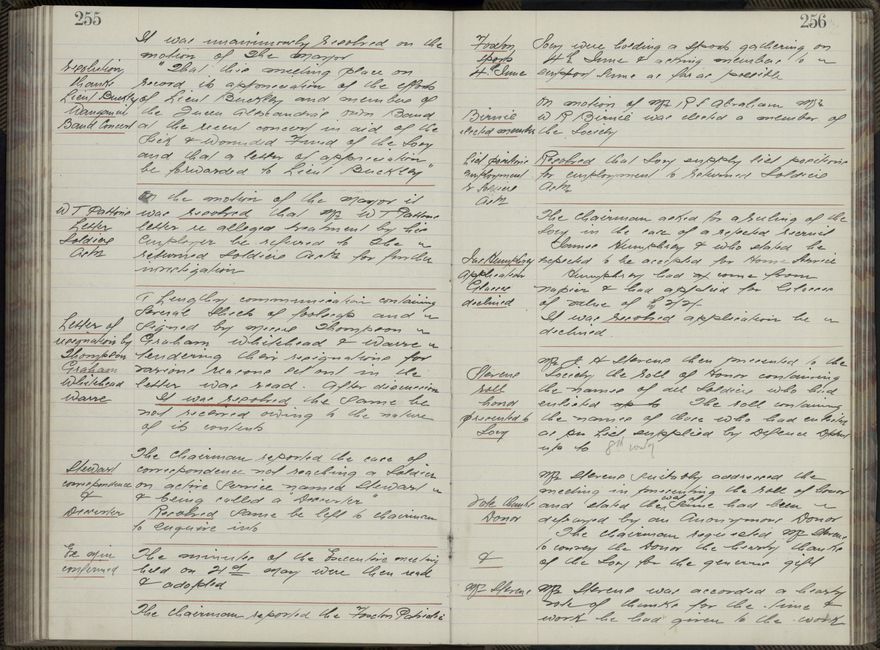 255
It was unanimously resolved on the
motion of The Mayor
Resolution
thanks
Lieut Buckley
Band Concert
"That this meeting place on
record its appreciation of the efforts
of Lieut Buckley and members of
the Queen Alexandra's Own Band
at the recent concert in aid of the
Sick & Wounded Fund of the Socy
and that a letter of appreciation
be forwarded to Lieut Buckley"
W T Pattons
Letter
Soldiers
Actn
On the motion of the Mayor it
was resolved that Mr W T Pattons
letter re alleged treatment by his
Employer be referred to The
returned Soldiers Actn for further
investigation
Letter of
resignation by
Thompson
Graham
Whitehead
Warre
A Lengthy communication containing
several sheets of foolscap and
signed by Messrs Thompson
Graham Whitehead & Warre
tendering their resignations for
various reasons set out in the
letter was read. After discussion
It was resolved the same be
not received owing to the nature
of its contents
Steward
correspondence
&
Deserter
The Chairman reported the case of
correspondence not reaching a Soldier
on active Service named Steward
& being called a "Deserter"
Resolved same be left to chairman
to enquire into
Ex min
confirmed
The minutes of the Executive meeting
held on 21st May were then read
& adopted
The Chairman reported the Foxton Patriotic
256
Foxton
Sports
4th June
Socy were holding a sports gathering on
4th June & asking members to
support same as far as possible
Birnie
elected member
On motion of Mr R S Abraham Mr
W R Birnie was elected a member of
the Society
List positions
employment
Actn
Resolved that Socy supply list positions
for employment to returned Soldiers
Actn
Jas Humphrey
application
Glasses
declined
The Chairman asked for a ruling of the
Socy in the case of a rejected recruit
James Humphrey & who stated he
rejected to be accepted for Home Service
Humphrey had come from
Napier & had applied for Glasses
of value of £2/2/-
It was resolved application be
declined
Stevens
roll
honor
presented to
Socy
Mr J H Stevens then presented to the
Society the Roll of Honor containing
the names of all Soldiers who had
enlisted up to The roll containing
the names of those who had enlisted
as per List supplied by Defence Dptmt
up to 8th
Vote thanks
Donor
&
Mr Stevens
Mr Stevens suitably addressed the
meeting in presenting the roll of honor
and stated the cost of same had been
defrayed by an Anonymous Donor
The Chairman requested Mr Stevens
to convey the Donor the hearty thanks
of the Socy for the generous gift
Mr Stevens was accorded a hearty
vote of thanks for the time &
work he had given to the work